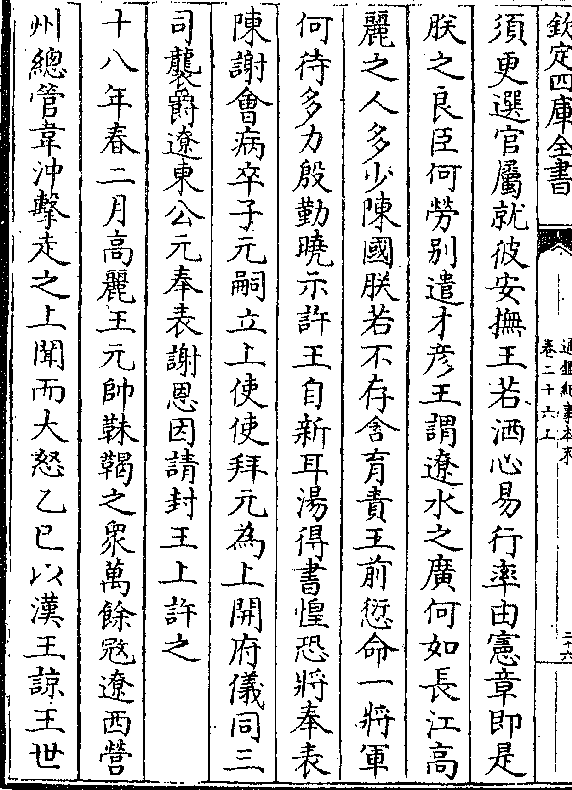 欽定四庫全書
通鑑紀事本末
卷二十六上
二十六
須更選官屬就彼安撫王若洒心易行率由憲章即是
朕之良臣何勞别遣才彦王謂遼水之廣何如長江高
麗之人多少陳國朕若不存含育責王前愆命一將軍
何待多力殷勤曉示許王自新耳湯得書惶恐將奉表
陳謝會病卒子元嗣立上使使拜元為上開府儀同三
司襲爵遼東公元奉表謝恩因請封王上許之
十八年春二月高麗王元帥靺鞨之衆萬餘冦遼西營
州總管韋沖擊走之上聞而大怒乙巳以漢王諒王世